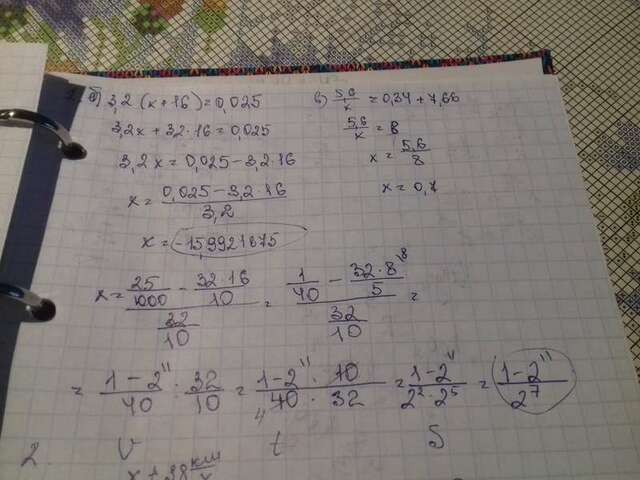 б) 3,2 (x + 16) = 0,025
3,2x + 3,2 · 16 = 0,025
3,2x = 0,025 - 3,2 · 16
x = (0,025 - 3,2 · 16) / 3,2
x = -15,9921875
x = (25/1000 - 32·16/10) / (32/10) = (1/40 - 32·8/5) / (32/10) =
= (1 - 2¹¹)/40 : 32/10 = (1 - 2¹¹ · 10)/(40 · 32) = (1 - 2¹¹)/(2² · 2⁵) = (1 - 2¹¹)/2⁷
5,6/x = 0,34 + 7,66
5,6/x = 8
x = 5,6/8
x = 0,7
2.
v
t
S